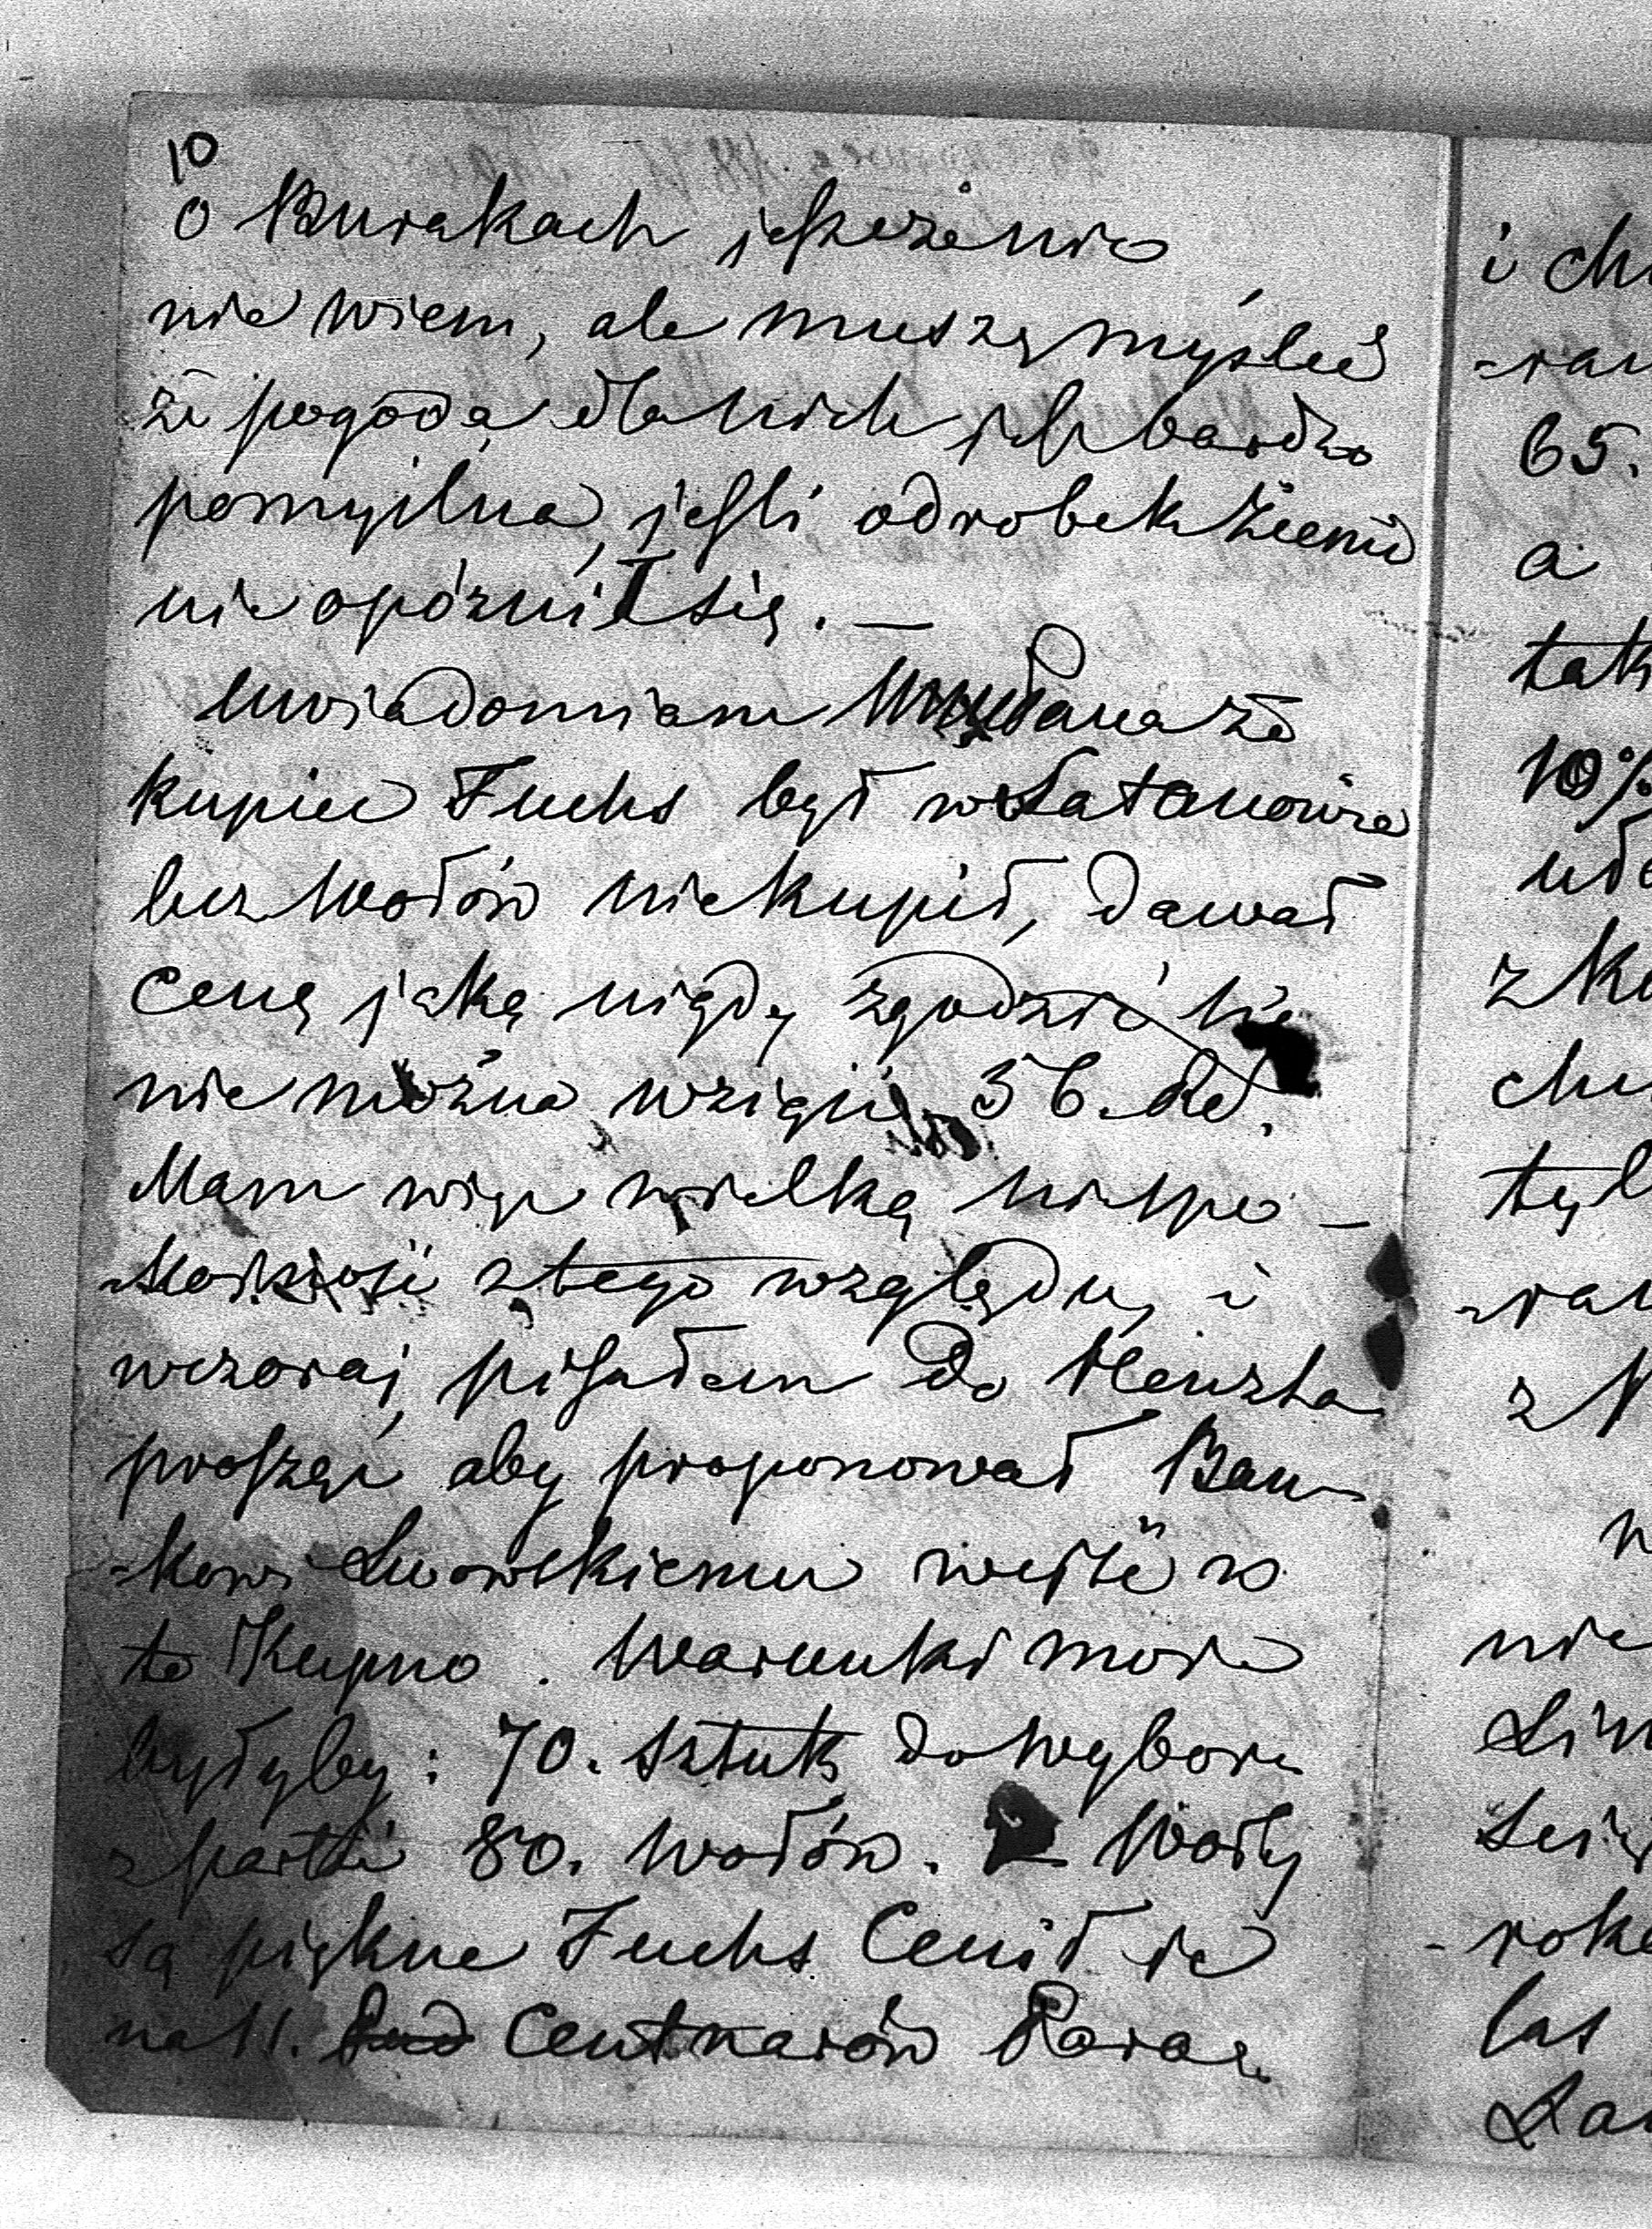 10
O Burakach jeszcze nic
nie wiem, ale muszę myśleć
że pogoda dla nich jest bardzo
pomyślna, jeśli odrobek ziemie
nie opóźnił się. —
Uwiadomiam Pana że
kupiec Fuchs był w Satanowie
lecz Wołów nie kupił, dawał
Cenę jaką nigdy zgodzić się
nie można wziąść 56. Rs.
Mam więc wielką niespo-
-kojność z tego względu, i
wczoraj pisałem do Henryka
prosząc aby proponował Ban-
-kowi Lwowskiemu wejść w
to Kupno. Warunki moje
byłyby: 70. sztuk do Wyboru
z partii 80. Wołów. — Woły
są piękne Fuchs Cenił je
na 11. Centnarów Para
i ch
-ran
65.
a
tak
10%
z k
chu
tyl
-ra
z
nie
-rok
las